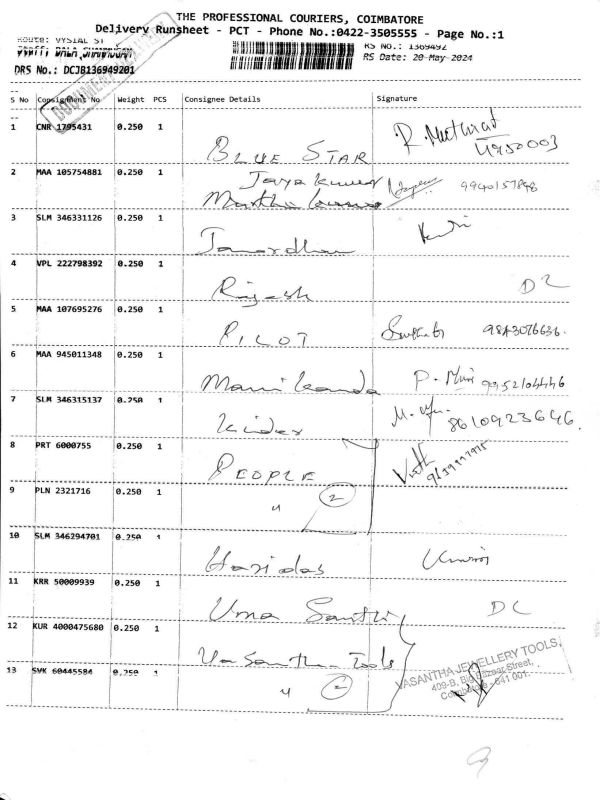 THE PROFESSIONAL COURIERS, COIMBATORE
Delivery Runsheet - PCT - Phone No.:0422-3505555 - Page No.:1
Route: VYSIAL ST
RS No.: 1369492
RS Date: 20-May-2024
DRS No.: DCJB136949201
S No Consignment No Weight PCS Consignee Details Signature
1 CNR 1795431 0.250 1 BLUE STAR
2 MAA 105754881 0.250 1 Jayakumar 9940157898
3 SLM 346331126 0.250 1 Janardhan
4 VPL 222798392 0.250 1 Rajesh
5 MAA 107695276 0.250 1 PILOT 9843076636.
6 MAA 945011348 0.250 1 Manikanda P. Mani
7 SLM 346315137 0.250 1 8610923646.
8 PRT 6000755 0.250 1 PEOPLE
9 PLN 2321716 0.250 1 " 2
10 SLM 346294701 0.250 1 Haridas
11 KRR 50009939 0.250 1 Uma Santhi DC
12 KUR 4000475680 0.250 1 Vasantha Tools
VASANTHA JEWELLERY TOOLS,
409-B, Big Bazaar Street,
Coimbatore - 641 001.
13 SVK 60445584 0.250 1 " 2